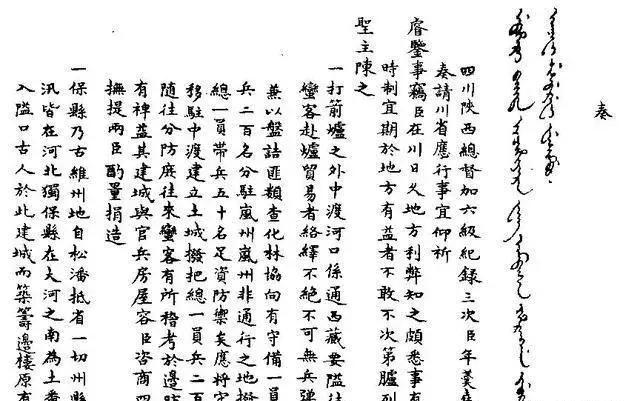 奏
四川陝西總督加六級紀錄三次臣年羹
奏請川省應行事宜仰祈
睿鑒事竊臣在川日久地方利弊知之頗悉事有
時制宜期於地方有益者不敢不次第臚列
聖主陳之
一打箭爐之外中渡河口係通西藏要隘往
蠻客赴爐貿易者絡繹不絕不可無兵彈
兼以盤詰匪類查化林協向有守備一員
兵二百名分駐嵐州嵐州非通行之地撥
總一員帶兵五十名足資防禦矣應將守
移駐中渡建立土城撥把總一員兵二百
隨往分防庶往來蠻客有所稽考於邊防
有裨益其建城與官兵房屋容臣咨商四
撫提兩臣酌量捐造
一保縣乃古維州地自松潘抵省一切州縣
汛皆在河北獨保縣在大河之南為土番
入隘口古人於此建城而築籌邊樓原有